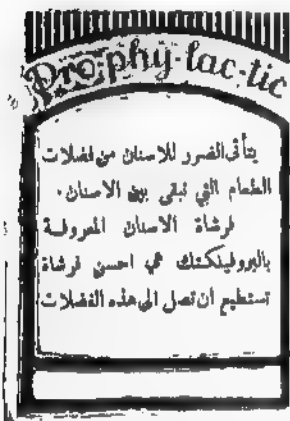 Pro-phy-lac-tic
يتأتى الضرر للاسنان من فضلات
الطعام التي تبقى بين الاسنان ·
فرشاة الاسنان المعروفة
بالبروفيلكتك هي احسن فرشاة
تستطيع ان تصل الى هذه الفضلات